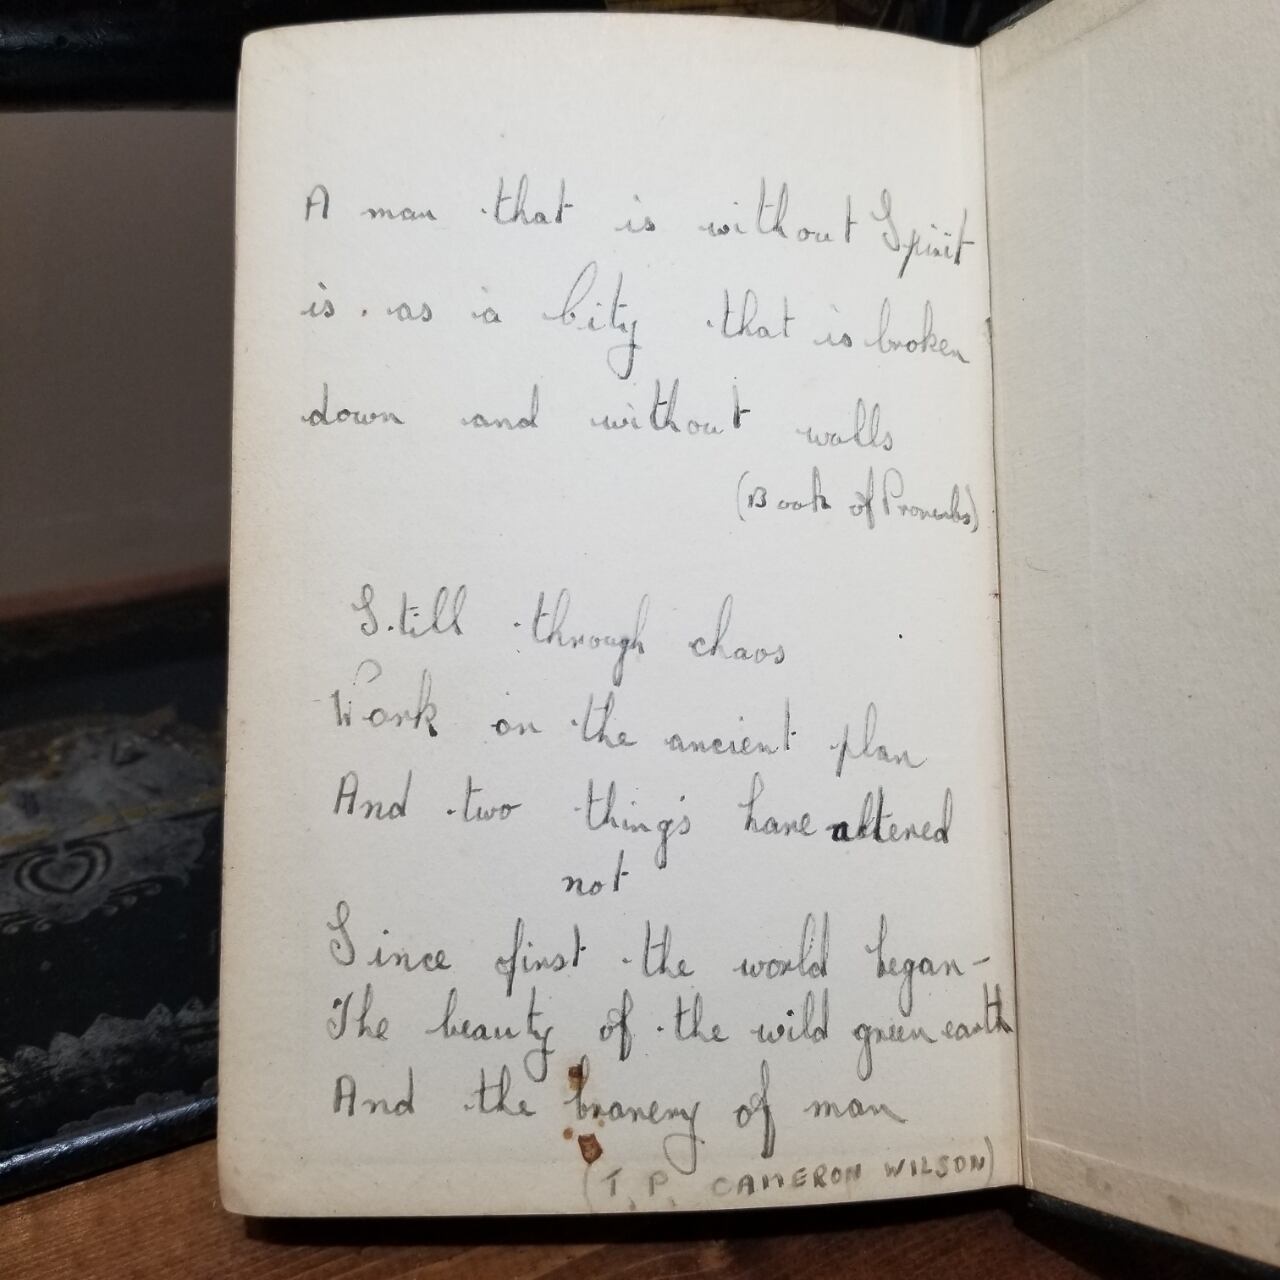 A man that is without Spirit
is as a City that is broken
down and without walls
(Book of Proverbs)
Still through chaos
Work on the ancient plan
And two things have altered
not
Since first the world began—
The beauty of the wild green earth
And the bravery of man
(T. P. CAMERON WILSON)